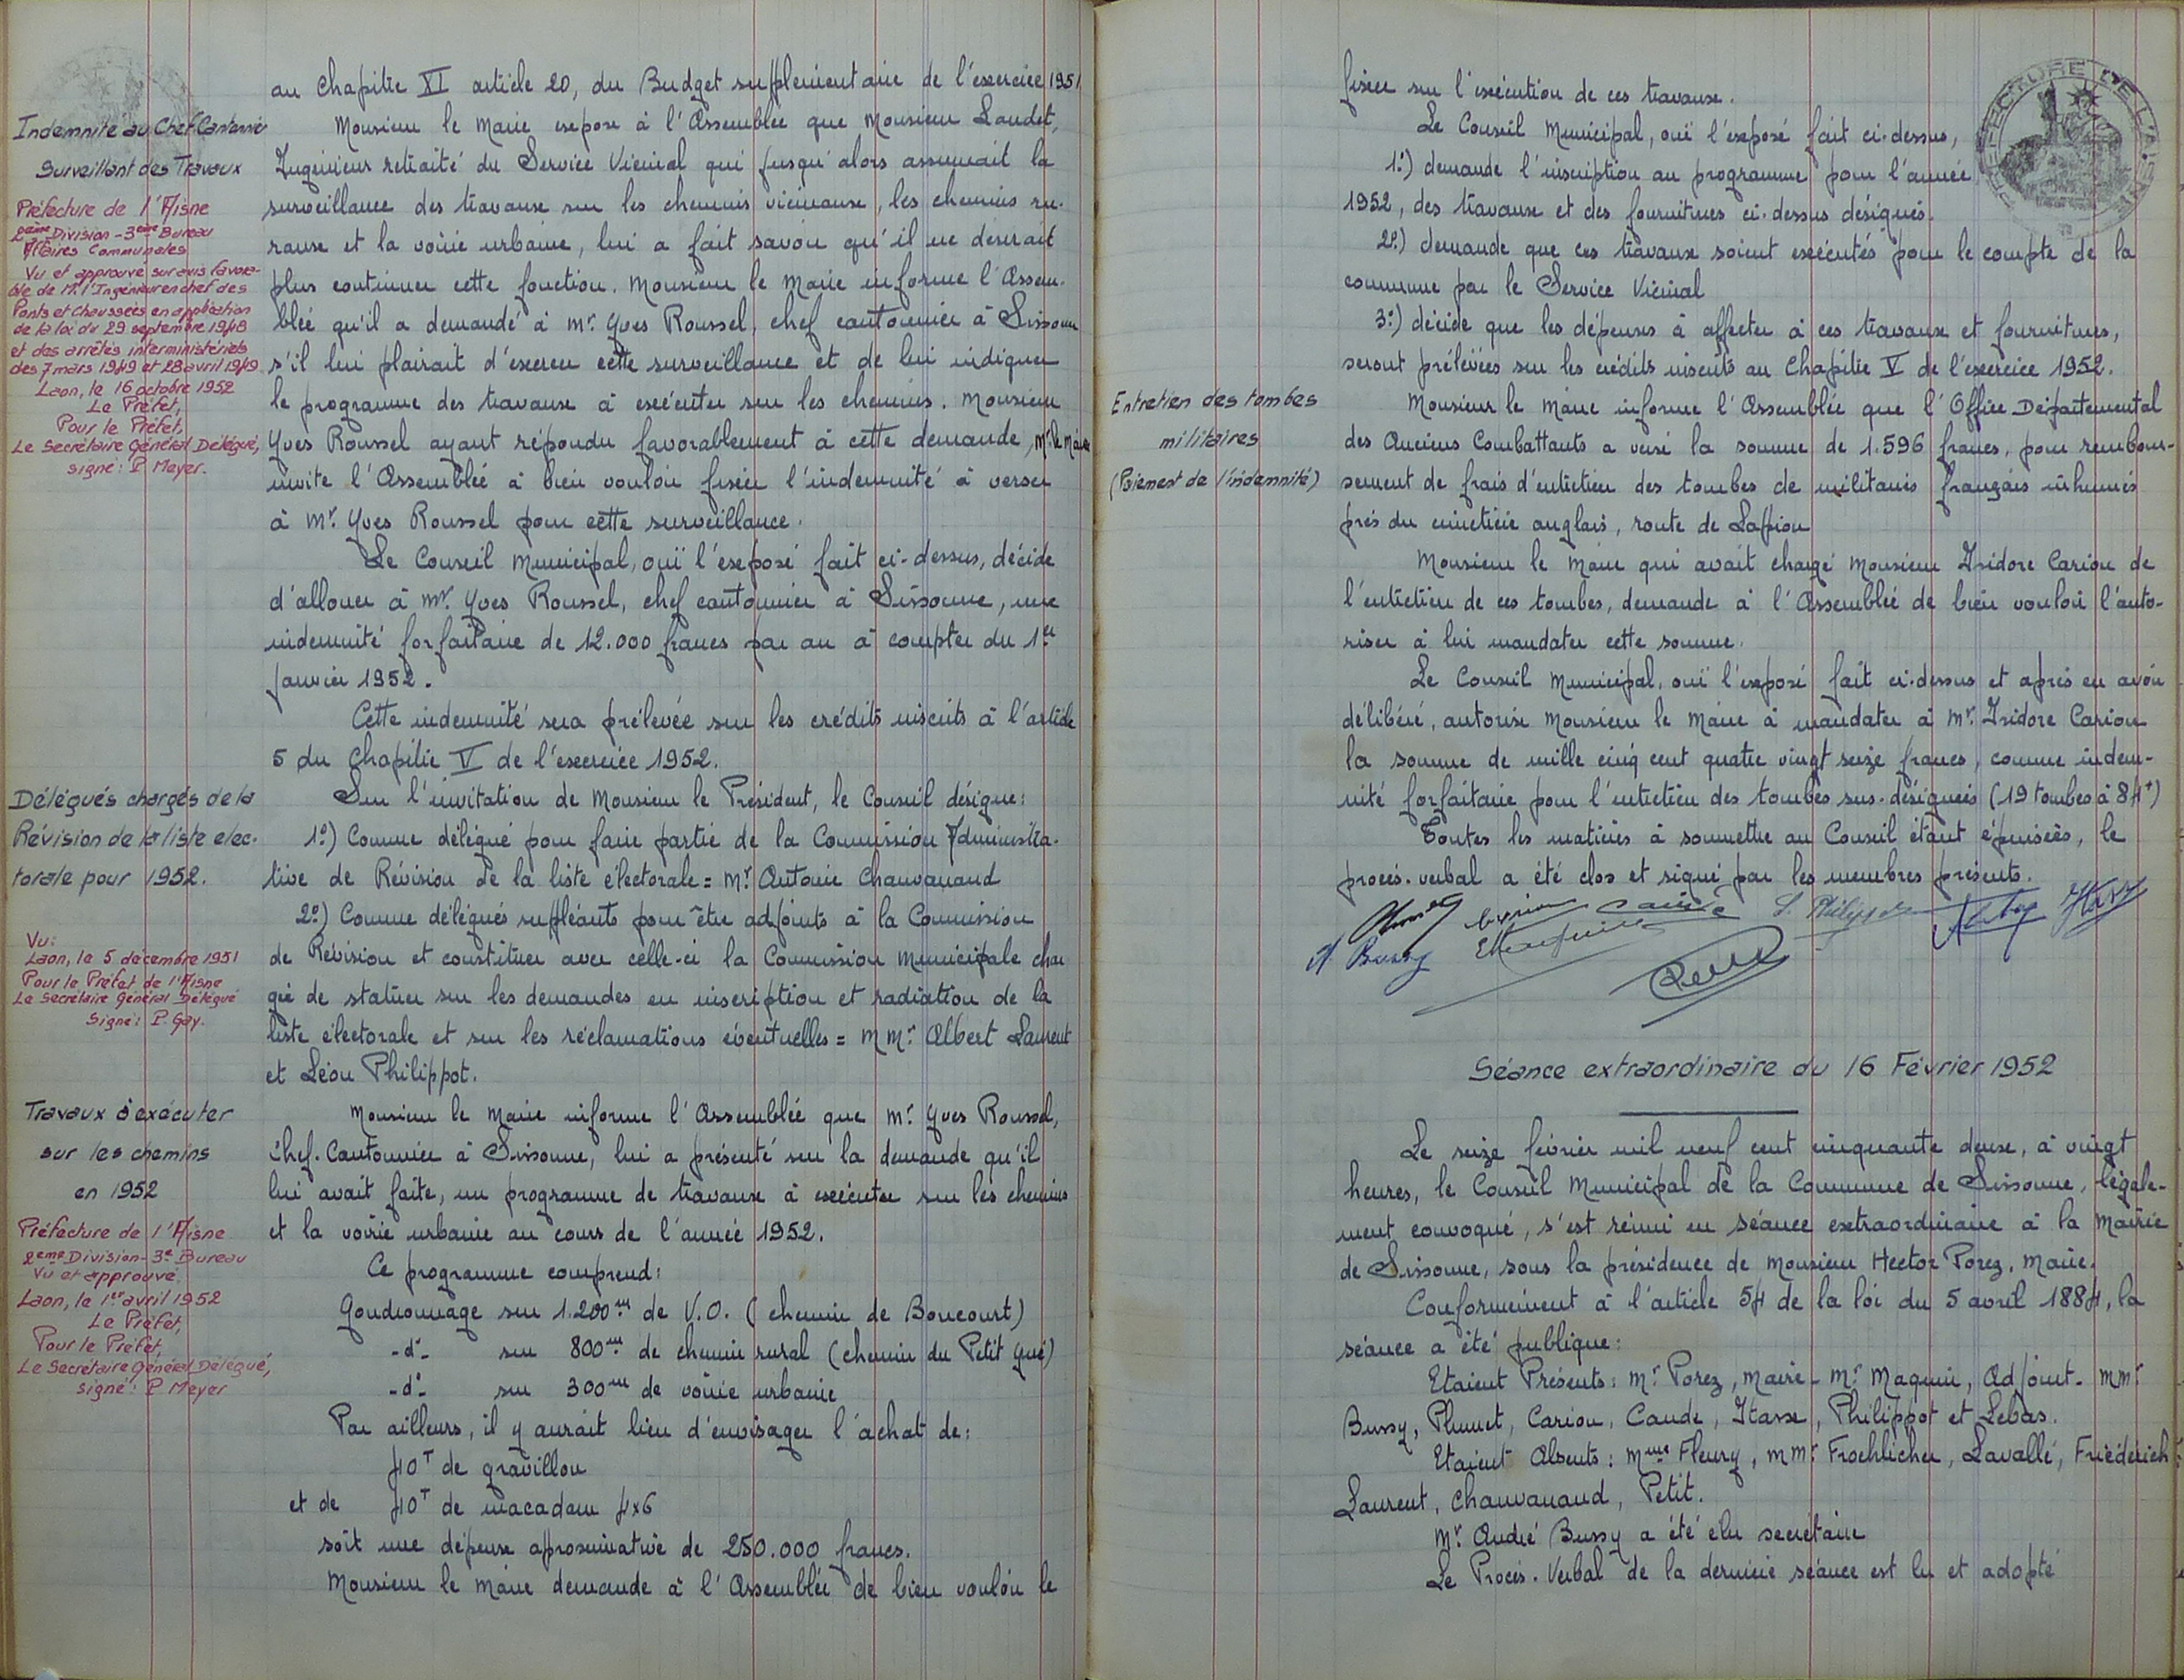 au Chapitre XI article 20, du Budget supplémentaire de l'exercice 1951
Indemnité au Chef Cantonnier
Surveillant des Travaux
Préfecture de l'Aisne
2ème Division - 3ème Bureau
Affaires Communales
Vu et approuvé sur avis favora-
ble de M. l'Ingénieur en chef des
Ponts et Chaussées en application
de la loi du 29 septembre 1948
et des arrêtés interministériels
des 7 mars 1949 et 28 avril 1949
Laon, le 16 octobre 1952
Le Préfet,
Pour le Préfet,
Le Secrétaire Général Délégué,
signé: P. Meyer.
Monsieur le Maire expose à l'Assemblée que Monsieur Laudet,
Ingénieur retraité du Service Vicinal qui jusqu'alors assumait la
surveillance des travaux sur les chemins vicinaux, les chemins ru-
raux et la voirie urbaine, lui a fait savoir qu'il ne désirait
plus continuer cette fonction. Monsieur le Maire informe l'Assem-
blée qu'il a demandé à Mr. Yves Roussel, chef cantonnier à Sissonne
s'il lui plairait d'exercer cette surveillance et de lui indiquer
le programme des travaux à exécuter sur les chemins. Monsieur
Yves Roussel ayant répondu favorablement à cette demande, Mr. le Maire
invite l'Assemblée à bien vouloir fixer l'indemnité à verser
à Mr. Yves Roussel pour cette surveillance.
Le Conseil Municipal, ouï l'exposé fait ci-dessus, décide
d'allouer à Mr. Yves Roussel, chef cantonnier à Sissonne, une
indemnité forfaitaire de 12.000 francs par an à compter du 1er
janvier 1952.
Cette indemnité sera prélevée sur les crédits inscrits à l'article
5 du Chapitre V de l'exercice 1952.
Délégués chargés de la
Révision de la liste élec-
torale pour 1952.
Vu:
Laon, le 5 décembre 1951
Pour le Préfet de l'Aisne
Le Secrétaire Général Délégué
Signé: P. Gay.
Sur l'invitation de Monsieur le Président, le Conseil désigne:
1º) Comme délégué pour faire partie de la Commission Administra-
tive de Révision de la liste électorale = Mr. Antoine Chauvanaud
2º) Comme délégués suppléants pour être adjoints à la Commission
de Révision et constituer avec celle-ci la Commission Municipale char
gée de statuer sur les demandes en inscription et radiation de la
liste électorale et sur les réclamations éventuelles = MMrs Albert Laurent
et Léon Philippot.
Travaux à exécuter
sur les chemins
en 1952
Préfecture de l'Aisne
2ème Division - 3e Bureau
Vu et approuvé
Laon, le 1er avril 1952
Le Préfet,
Pour le Préfet,
Le Secrétaire Général Délégué,
signé: P. Meyer
Monsieur le Maire informe l'Assemblée que Mr. Yves Roussel,
Chef-Cantonnier à Sissonne, lui a présenté sur la demande qu'il
lui avait faite, un programme de travaux à exécuter sur les chemins
et la voirie urbaine au cours de l'année 1952.
Ce programme comprend:
Goudronnage sur 1.200m de V.O. (chemin de Boncourt)
-dº- sur 800m de chemin rural (chemin du Petit Gué)
-dº- sur 300m de voirie urbaine
Par ailleurs, il y aurait lieu d'envisager l'achat de:
40T de gravillon
et de 40T de macadam 4x6
soit une dépense aproximative de 250.000 francs.
Monsieur le Maire demande à l'Assemblée de bien vouloir le
fixer sur l'exécution de ces travaux.
PREFECTURE DE L'AISNE
Le Conseil Municipal, ouï l'exposé fait ci-dessus,
1º) demande l'inscription au programme pour l'année
1952, des travaux et des fournitures ci-dessus désignés.
2º) demande que ces travaux soient exécutés pour le compte de la
commune par le Service Vicinal
3º) décide que les dépenses à affecter à ces travaux et fournitures,
seront prélevées sur les crédits inscrits au Chapitre V de l'exercice 1952.
Entretien des tombes
militaires
(Paiement de l'indemnité)
Monsieur le Maire informe l'Assemblée que l'Office Départemental
des Anciens Combattants a versé la somme de 1.596 francs, pour rembour-
sement de frais d'entretien des tombes de militaires français inhumés
près du cimetière anglais, route de Lappion
Monsieur le Maire qui avait chargé Monsieur Isidore Cariou de
l'entretien de ces tombes, demande à l'Assemblée de bien vouloir l'auto-
riser à lui mandater cette somme.
Le Conseil Municipal, ouï l'exposé fait ci-dessus et après en avoir
délibéré, autorise Monsieur le Maire à mandater à Mr. Isidore Cariou
la somme de mille cinq cent quatre vingt seize francs, comme indem-
nité forfaitaire pour l'entretien des tombes sus-désignées (19 tombes à 84f)
Toutes les matières à soumettre au Conseil étant épuisées, le
procès-verbal a été clos et signé par les membres présents.
L. Philippot
A. Bussy
Séance extraordinaire du 16 Février 1952
Le seize février mil neuf cent cinquante deux, à vingt
heures, le Conseil Municipal de la Commune de Sissonne, légale-
ment convoqué, s'est réuni en séance extraordinaire à la Mairie
de Sissonne, sous la présidence de Monsieur Hector Porez, Maire.
Conformément à l'article 54 de la loi du 5 avril 1884, la
séance a été publique:
Etaient Présents: Mr. Porez, Maire - Mr. Maquin, Adjoint - MMrs
Bussy, Plumet, Cariou, Caude, Itasse, Philippot et Lebas.
Etaient Absents: Mme Fleury, MMrs Froehlicher, Lavallé, Friédérich
Laurent, Chauvanaud, Petit.
Mr. André Bussy a été élu secrétaire
Le Procès-Verbal de la dernière séance est lu et adopté